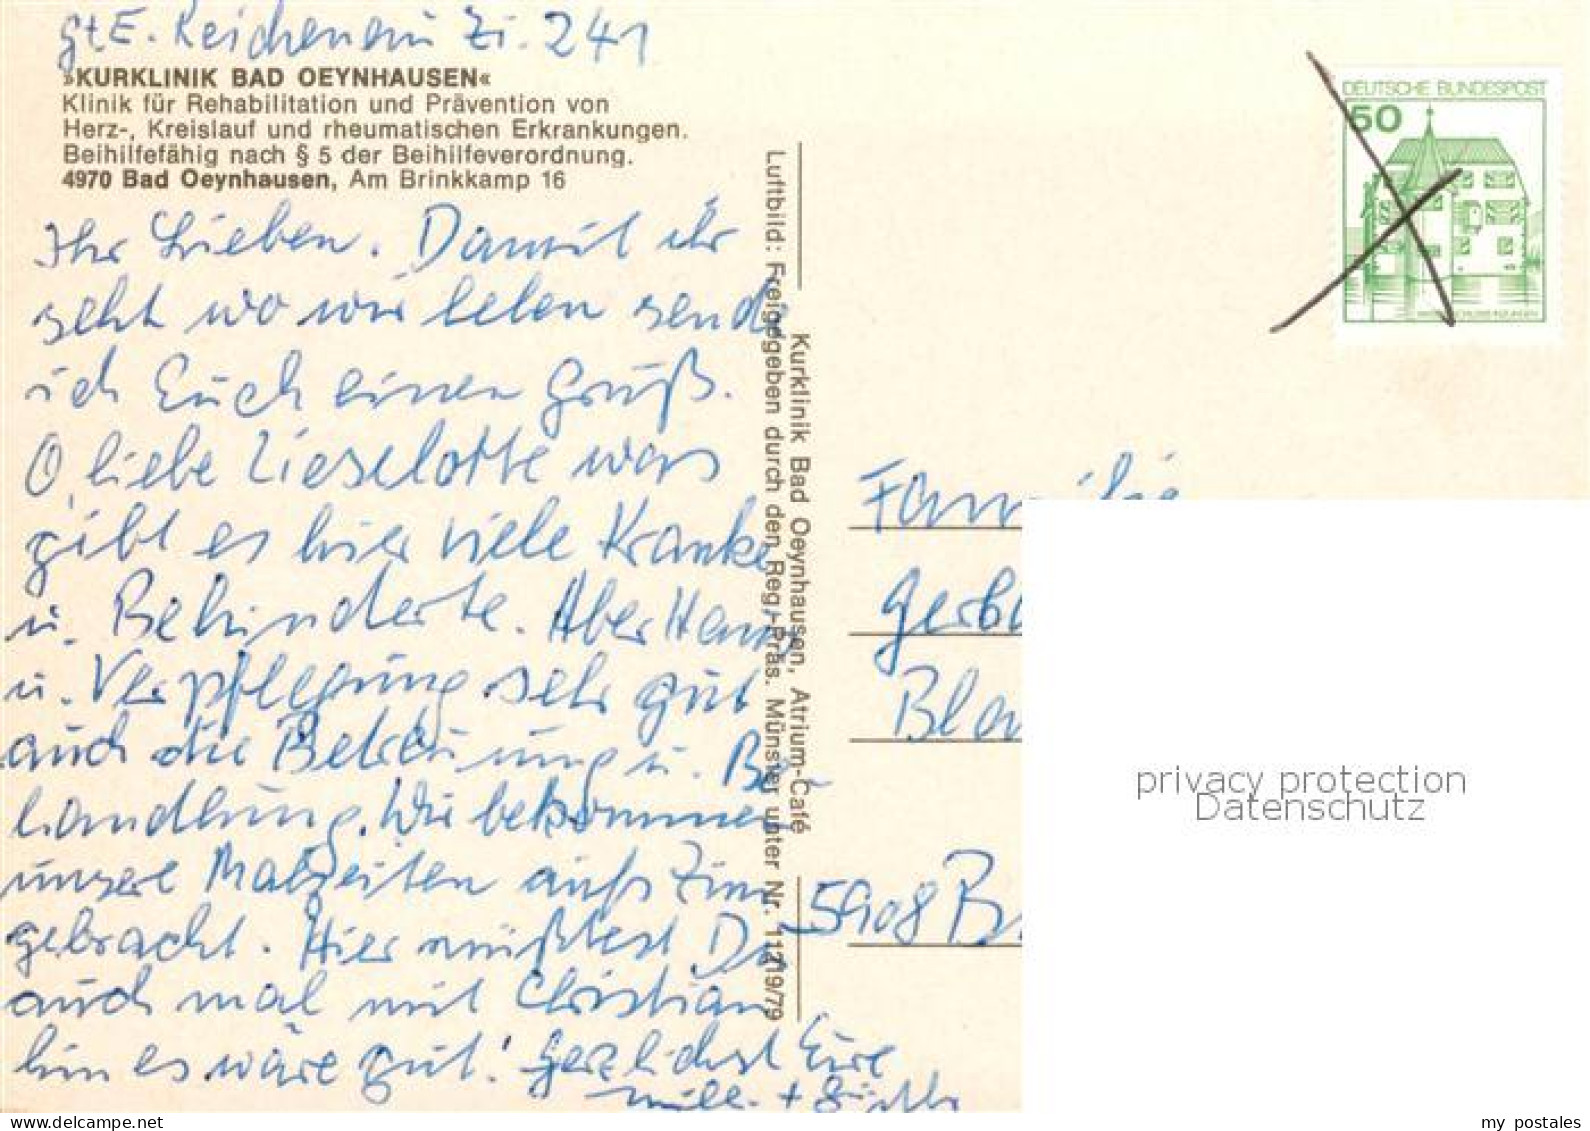 gt. E. Reichenau Zi. 241
»KURKLINIK BAD OEYNHAUSEN«
Klinik für Rehabilitation und Prävention von
Herz-, Kreislauf und rheumatischen Erkrankungen.
Beihilfefähig nach § 5 der Beihilfeverordnung.
4970 Bad Oeynhausen, Am Brinkkamp 16
Ihr Lieben. Damit ihr
seht wo wir leben sende
ich Euch einen Gruß.
O, liebe Lieselotte was
gibt es hier viele Kranke
u. Behinderte. Aber Haus
u. Verpflegung sehr gut
auch die Betreuung u. Be-
handlung. Wir bekommen
unsere Mahlzeiten aufs Zim
gebracht. Hier müßtest Du
auch mal mit Christian
hin es wäre gut! Herzlichst Eure
+
Luftbild: Freigegeben durch den Reg.-Präs. Münster unter Nr. 11219/79
Kurklinik Bad Oeynhausen, Atrium-Café
DEUTSCHE BUNDESPOST
50
Familie
Gerb
Bla
5908 B
privacy protection
Datenschutz
my postales